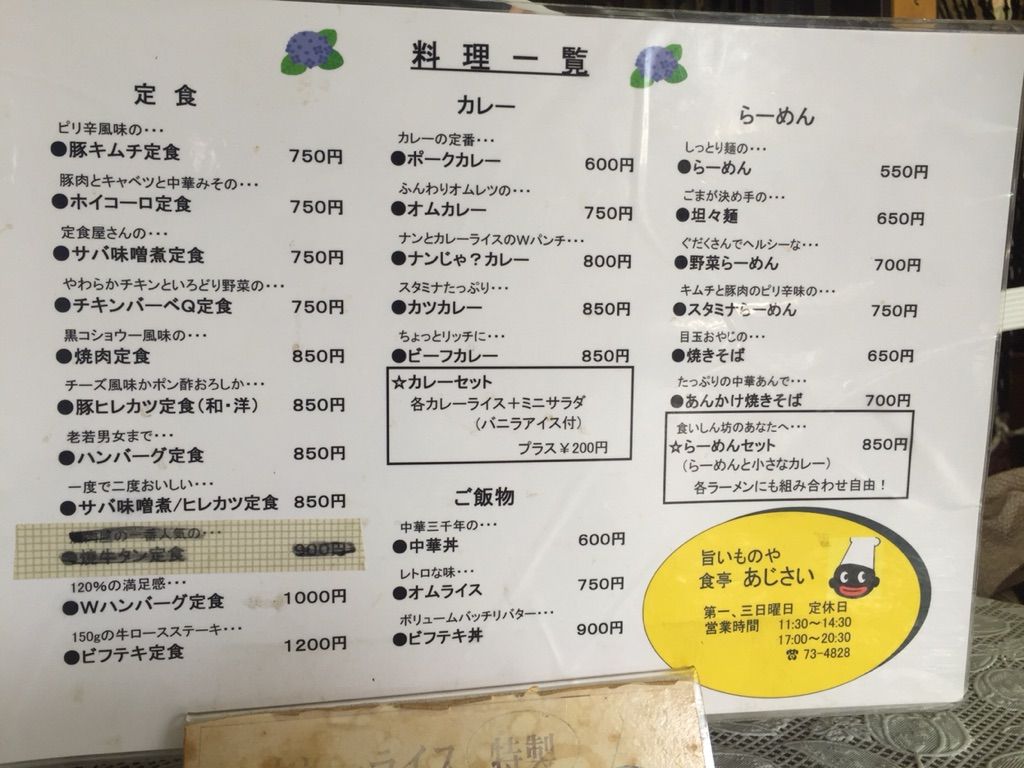 料理一覧
定食
ピリ辛風味の・・・
●豚キムチ定食 750円
豚肉とキャベツと中華みその・・・
●ホイコーロ定食 750円
定食屋さんの・・・
●サバ味噌煮定食 750円
やわらかチキンといろどり野菜の・・・
●チキンバーベQ定食 750円
黒コショウー風味の・・・
●焼肉定食 850円
チーズ風味かポン酢おろしか・・・
●豚ヒレカツ定食(和・洋) 850円
老若男女まで・・・
●ハンバーグ定食 850円
一度で二度おいしい・・・
●サバ味噌煮/ヒレカツ定食 850円
の一番人気の・・・
●焼牛タン定食 900円
120%の満足感・・・
●Wハンバーグ定食 1000円
150gの牛ロースステーキ・・・
●ビフテキ定食 1200円
カレー
カレーの定番・・・
●ポークカレー 600円
ふんわりオムレツの・・・
●オムカレー 750円
ナンとカレーライスのWパンチ・・・
●ナンじゃ?カレー 800円
スタミナたっぷり・・・
●カツカレー 850円
ちょっとリッチに・・・
●ビーフカレー 850円
☆カレーセット
各カレーライス+ミニサラダ
(バニラアイス付)
プラス¥200円
ご飯物
中華三千年の・・・
●中華丼 600円
レトロな味・・・
●オムライス 750円
ボリュームバッチリバター・・・
●ビフテキ丼 900円
らーめん
しっとり麺の・・・
●らーめん 550円
ごまが決め手の・・・
●坦々麺 650円
ぐだくさんでヘルシーな・・・
●野菜らーめん 700円
キムチと豚肉のピリ辛味の・・・
●スタミナらーめん 750円
目玉おやじの・・・
●焼きそば 650円
たっぷりの中華あんで・・・
●あんかけ焼きそば 700円
食いしん坊のあなたへ・・・
☆らーめんセット 850円
(らーめんと小さなカレー)
各ラーメンにも組み合わせ自由!
旨いものや
食亭 あじさい
第一、三日曜日 定休日
営業時間 11:30~14:30
17:00~20:30
☎ 73-4828
ライス 特製